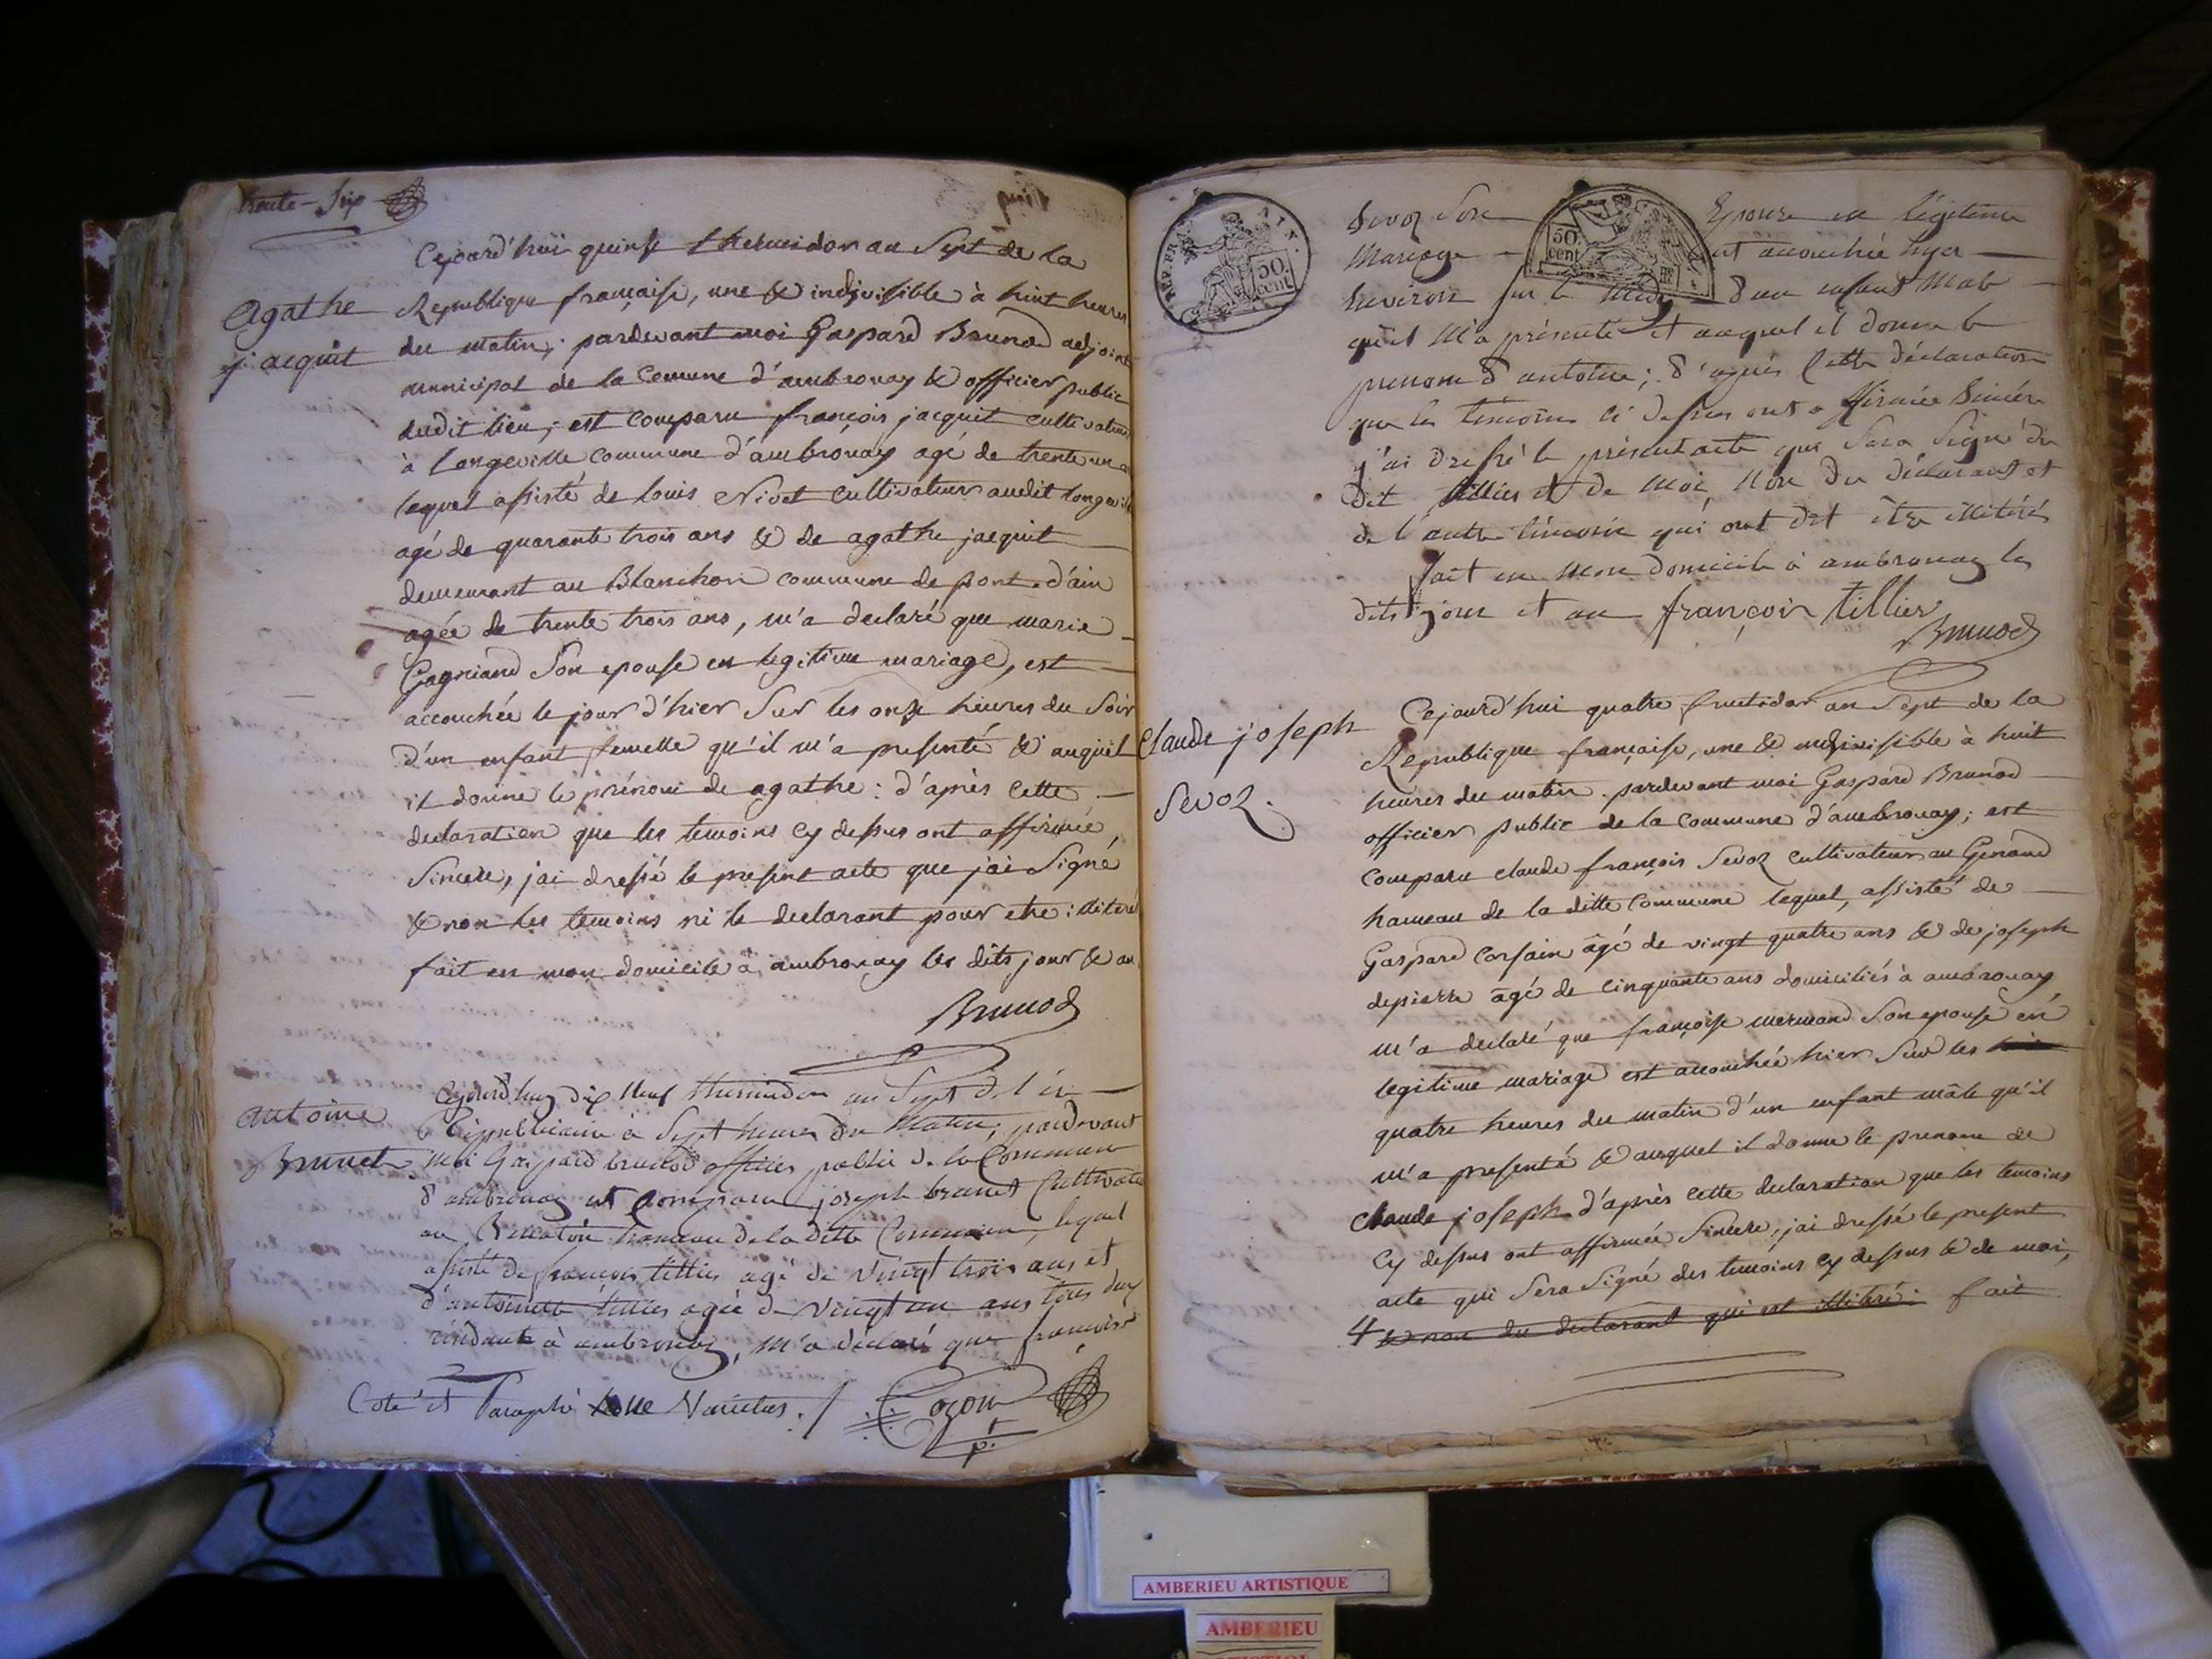 trente-six
Cejourd'hui quinse thermidor an sept de la
Agathe
jacquit
Republique française, une & indivisible à huit heures
du matin; pardevant moi Gaspard Brunod adjoint
municipal de la Comune d'ambronay & officier public
dudit lieu; est comparu françois jacquit cultivateur
à Longeville commune d'ambronay agé de trente un an
lequel assisté de louis Nivet cultivateur audit longeville
agé de quarante trois ans & de agathe jacquit
demeurant au Blanchon commune de pont-d'ain
agée de trente trois ans, m'a declaré que marie
Gagniand son epouse en legitime mariage, est
accouchée le jour d'hier sur les onze heures du soir
d'un enfant femelle qu'il m'a presenté & auquel
il donne le prénom de agathe: d'après cette
declaration que les temoins cy dessus ont affirmée
sincere, j'ai dressé le present acte que j'ai signé
& non les temoins ni le declarant pour etre illiteré
fait en mon domicile à ambronay les dits jour & an
Brunod
antoine
Brunet
Cejourd'huy dix neuf thermidor an sept de l'ère
Républicaine à sept heures du matin, pardevant
moi Gaspard brunod officier public de la Commune
d'ambronay est comparu joseph brunet Cultivateur
au hameau de la ditte Commune, lequel
assisté de françois tillier agé de vingt trois ans et
d'antoinette tillier agée de vingt un ans tous deux
résidants à ambronay, m'a déclaré que françoise
Coté et Paraphé Ne Varietur ./. Cozon
p.t
50. cent
50. cent
Sevoz son Epouse en légitime
Mariage est accouchée hyer
Environ sur le Midy d'un enfant Male
qu'il m'a présenté et auquel il donne le
prenom d'antoine; d'après Cette déclaration
que les témoins ci dessus ont affirmée sincère
j'ai dressé le présent acte qui sera signé du
dit tillier et de moi, Non du déclarant et
de l'autre témoin qui ont dit être illitérés
fait en mon domicile à ambronay les
dits jour et an françois tillier
Brunod
claude joseph
Sevoz.
Cejourd'hui quatre fructidor an sept de la
Republique française, une & indivisible à huit
heures du matin. pardevant moi Gaspard Brunod
officier public de la Commune d'ambronay; est
comparu claude françois Sevoz cultivateur au Genoud
hameau de la ditte Commune lequel, assisté de
Gaspard Corsain âgé de vingt quatre ans & de joseph
depierre âgé de cinquante ans domiciliés à ambronay
m'a declaré que françoise mermand son epouse en
legitime mariage est accouchée hier sur les
quatre heures du matin d'un enfant mâle qu'il
m'a presenté & auquel il donne le prenom de
claude joseph d'après cette declaration que les temoins
cy dessus ont affirmée sincere, j'ai dressé le present
acte qui sera signé des temoins cy dessus & de moi,
4 & non du declarant qui est illitéré: fait
AMBERIEU ARTISTIQUE
AMBERIEU